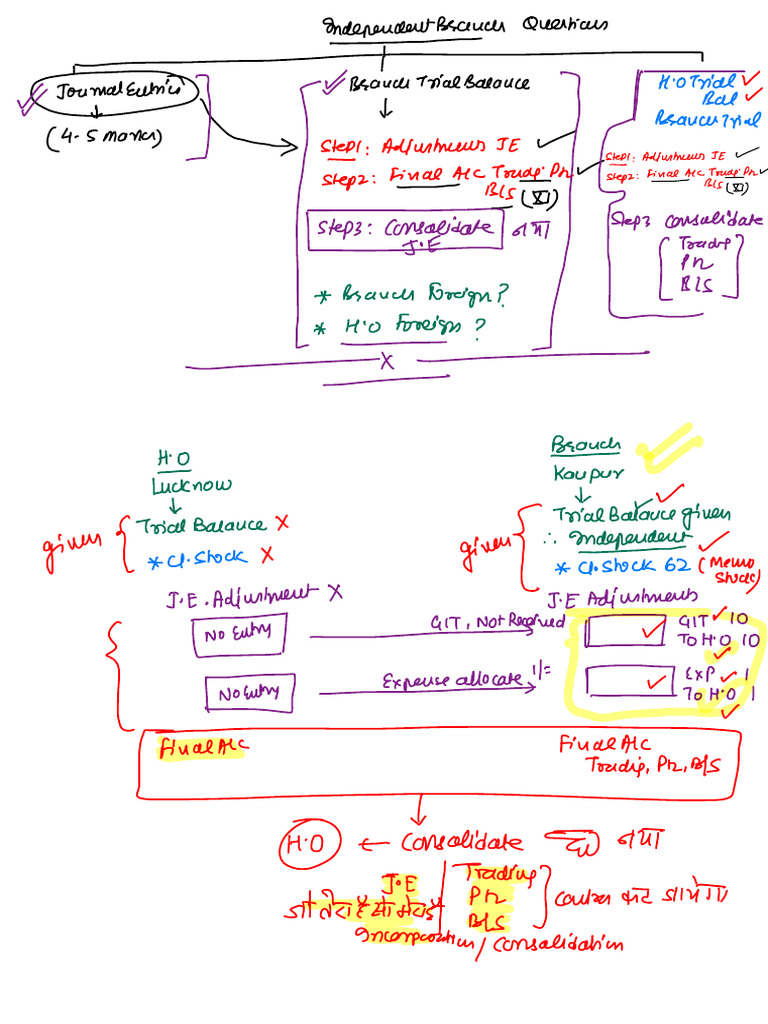 Independent Branch Questions
Journal Entries
(4-5 marks)
Branch Trial Balance
Step1: Adjustments JE
Step2: Final A/c Tradg. Pn
B/S (XI)
Step3: Consolidate नया
J.E
* Branch Foreign?
* H.O Foreign?
H.O Trial
Bal
Branch Trial
Step1: Adjustments JE
Step2: Final A/c Tradg. Pn
B/S (XI)
Step3 Consolidate
Tradg
Pn
B/S
X
H.O
Lucknow
given
Trial Balance X
* Cl. Stock X
J.E. Adjustment X
No Entry
GIT, Not Received
No Entry
Expense allocate 1/=
Branch
Kanpur
given
Trial Balance given
∴ Independent
* Cl. Stock 62 (Memo
Stock)
J.E Adjustments
GIT 10
To H.O 10
Exp 1
To H.O 1
Final A/c
Final A/c
Tradig, Pn, B/S
H.O ← Consolidate नया
J.E
जो तेरा है वो मेरा है
Trading
Pn
B/S
Incorporation / Consolidation